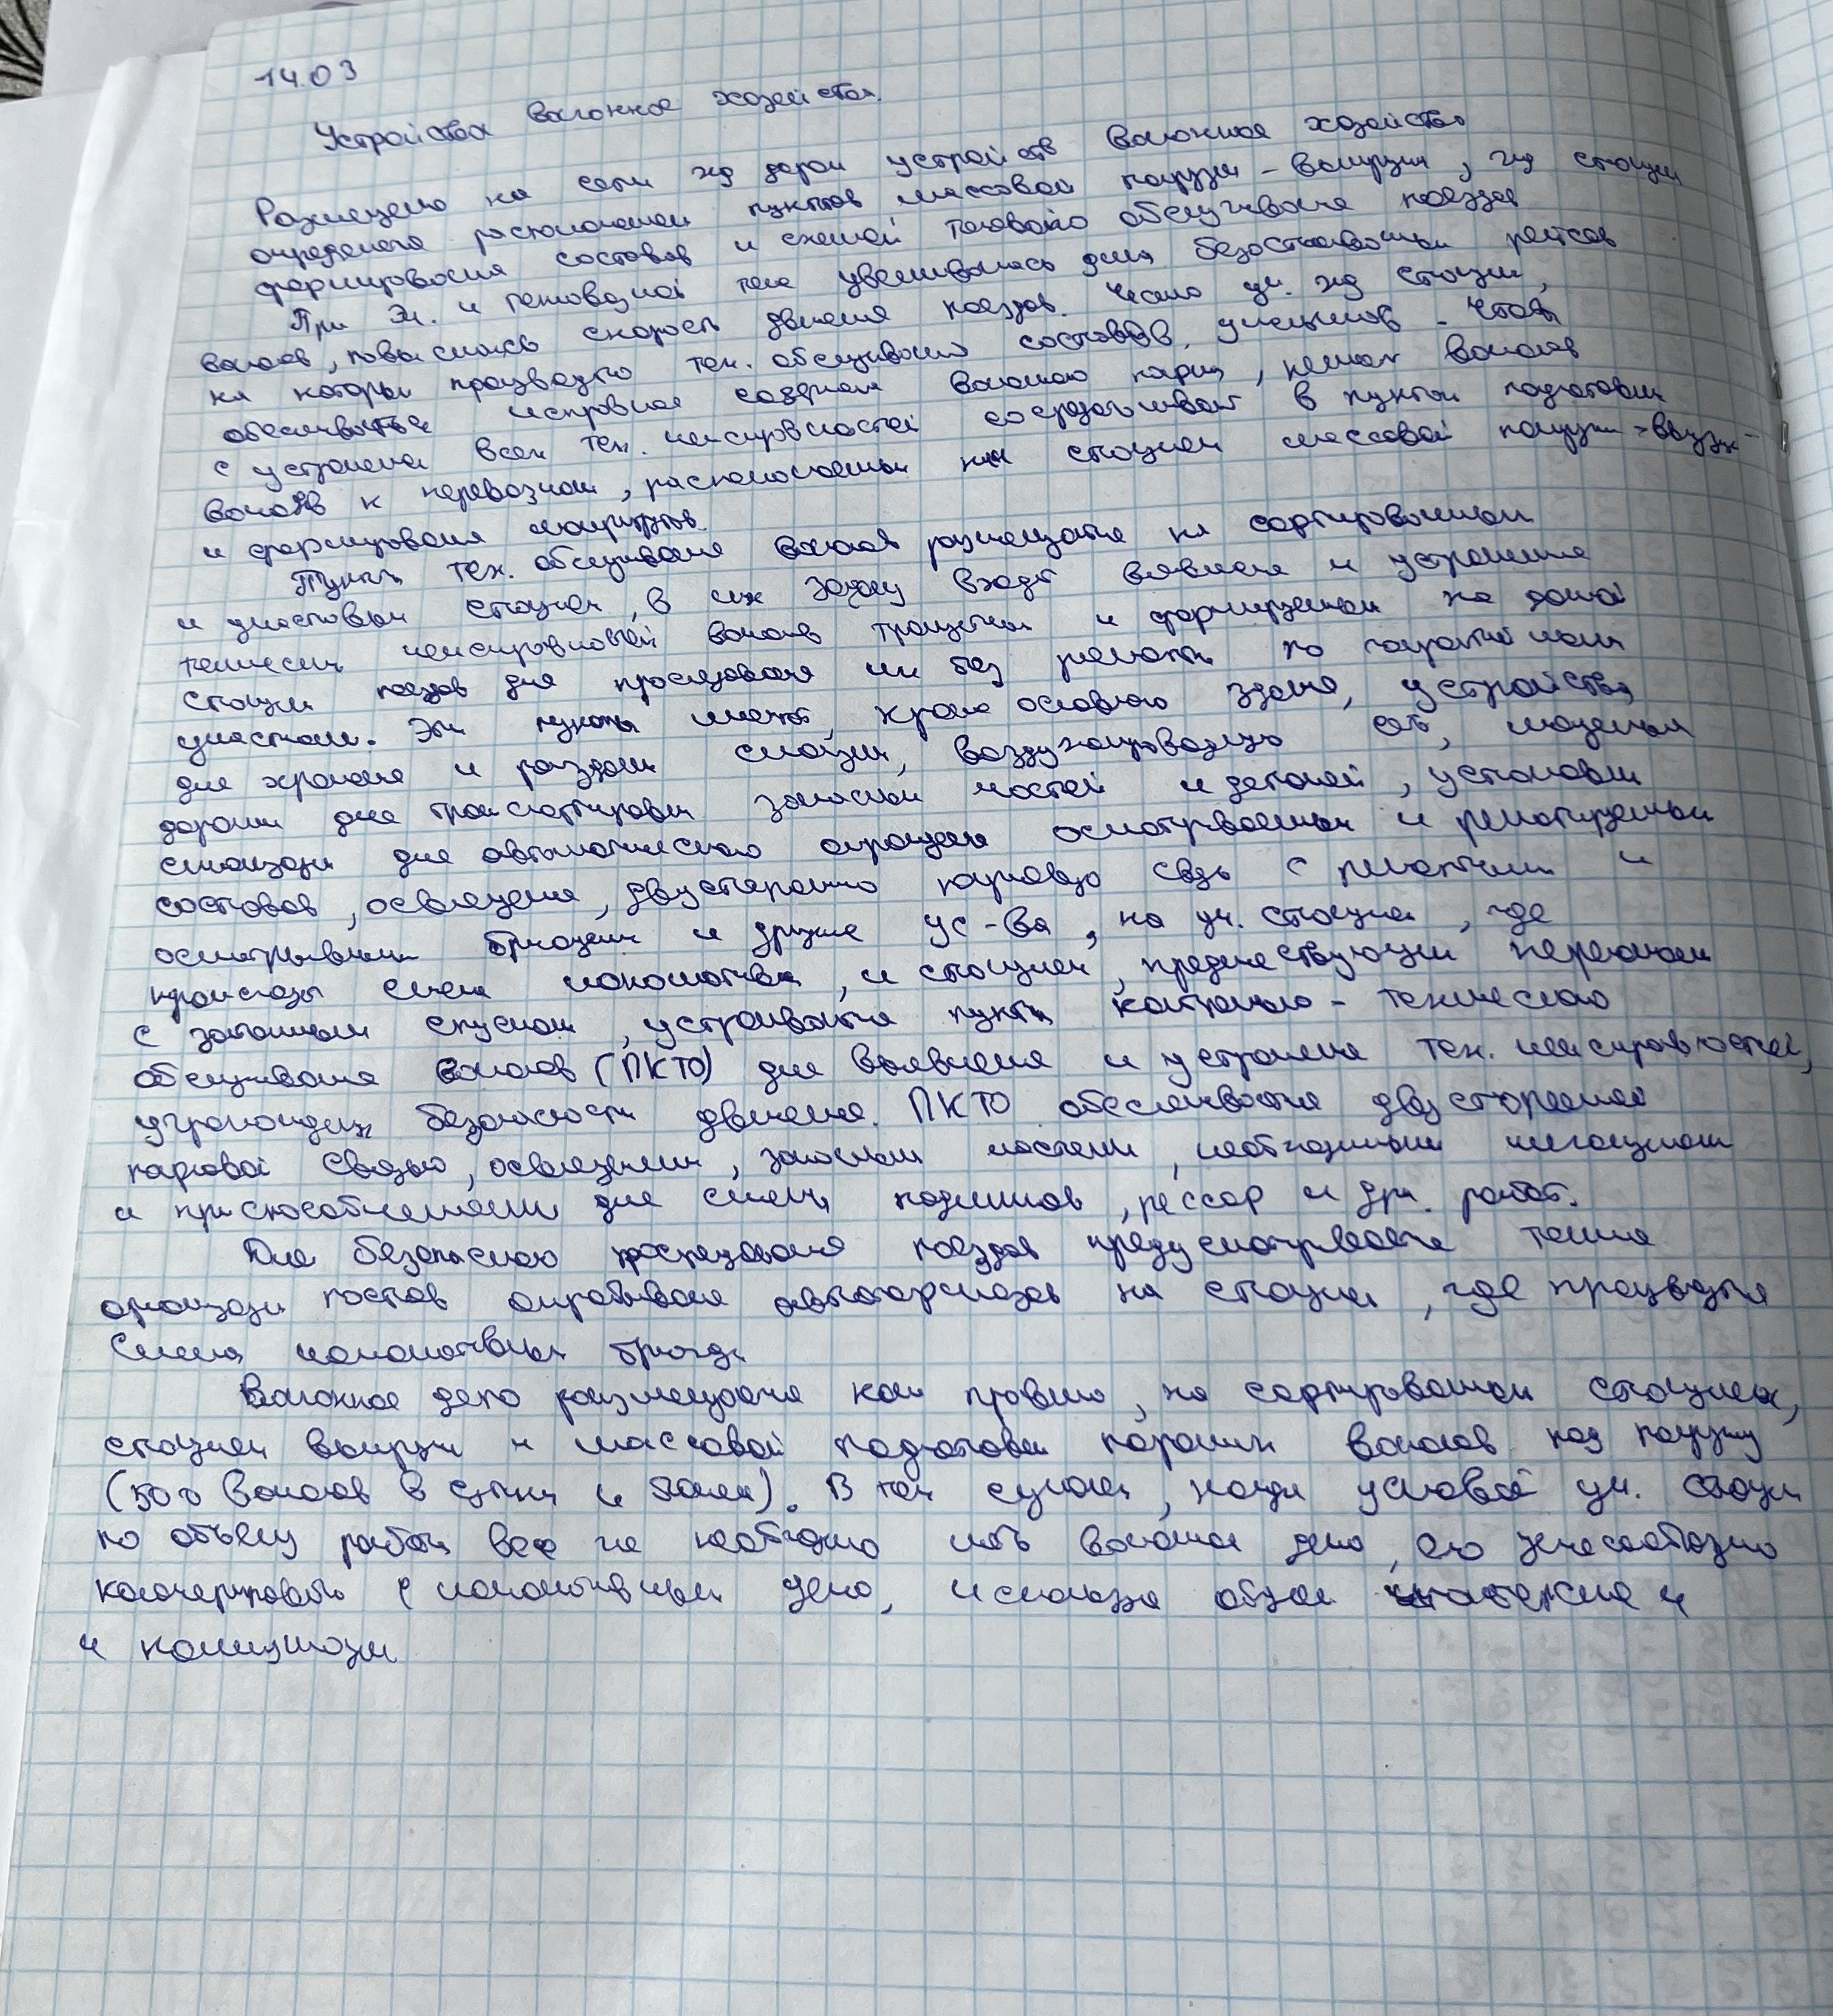 14.03
Устройства вагонное хозяйства.
Размещено на сети жд дорог устройств вагонное хозяйство
определено расположением пунктов массовой погрузки - выгрузки, жд станции
формирования составов и схемой тягового обслуживания поездов
При эл. и тепловозной тяге увеличивалась длина безостановочных рейсов
вагонов, повысилась скорость движения поездов. Число уч. жд станции,
на которых производято тех. обслуживанию составов, уменьшилов. Чтобы
обеспечивается исправное содержание вагонного парка, ремонт вагонов
с устранением всех тех. неисправностей сосредотачивают в пунктах подготовки
вагонов к перевозкам, расположенных на станциях массовой погрузки - выгрузки
и формирования маршрутов.
Пункты тех. обслуживания вагонов размещаются на сортировочных
и участковых станциях, в их задачу входят выявление и устранение
технических неисправностей вагонов транзитных и формируемых на данной
станции поездов для проследования их без ремонта по гарантийным
участкам. Эти пункты имеют, кроме основного здания, устройства
для хранения и раздачи смазки, воздухопроводную сеть,
дороги для транспортировки запасных частей и деталей, установки
для автоматического опробования осматриваемых и ремонтируемых
составов, освещения, двустороннюю парковую связь с ремонтными и
осмотровыми бригадами и другие ус-ва, на уч. станциях, где
происходит смена локомотива, и станциях, предшествующих перегонам
с затяжным спуском, устраиваются пункты контрольно - технического
обслуживания вагонов (ПКТО) для выявления и устранения тех. неисправностей,
угрожающих безопасности движения. ПКТО обеспечивается двусторонней
парковой связью, освещением, запасными частями, необходимыми механизмами
и приспособлениями для смены подшипников, рессор и др. работ.
Для безопасного проследования поездов предусматривается также
организация постов опробования автотормозов на станциях, где производятся
смена локомотивных бригад
Вагонное депо размещается как правило, на сортировочных станциях,
станциях выгрузки и массовой подготовки порожних вагонов под погрузку
(500 вагонов в сутки и более). В тех случаях, когда условий уч. станции
по объему работы все же необходимо иметь вагонное депо, его целесообразно
кооперировать с локомотивным депо, используя общие и
и коммуникации